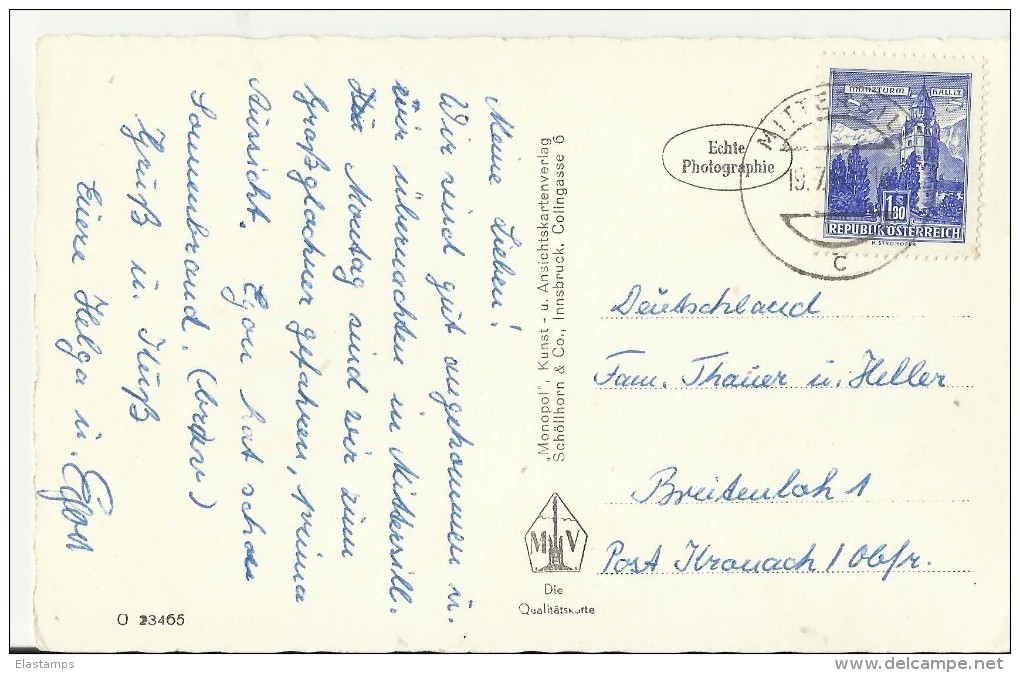 Meine Lieben!
Wir sind gut angekommen u.
wir übernachten in Mittersill.
Montag sind wir zum
Großglockner gefahren, prima
Aussicht. Egon hat schon
Sonnenbrand. (brav)
Gruß u. Kuß
Eure Helga u. Egon
O 23465
„Monopol", Kunst - u. Ansichtskartenverlag
Schöllhorn & Co., Innsbruck, Colingasse 6
MV
Die
Qualitätskarte
Echte
Photographie
MITTERSILL
19.7.
C
MÜNZTURM HALL I.T.
1 S 80
REPUBLIK ÖSTERREICH
H. STROHOFER
Deutschland
Fam. Thauer u. Heller
Breitenloh 1
Post Kronach / Obfr.
Elastamps
www.delcampe.net